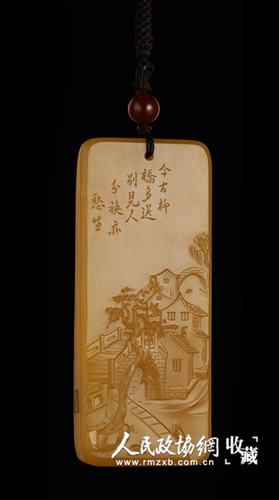 今古柳
橋多送
別見人
分袂亦
愁生
人民政協網 收藏
www.rmzxb.com.cn